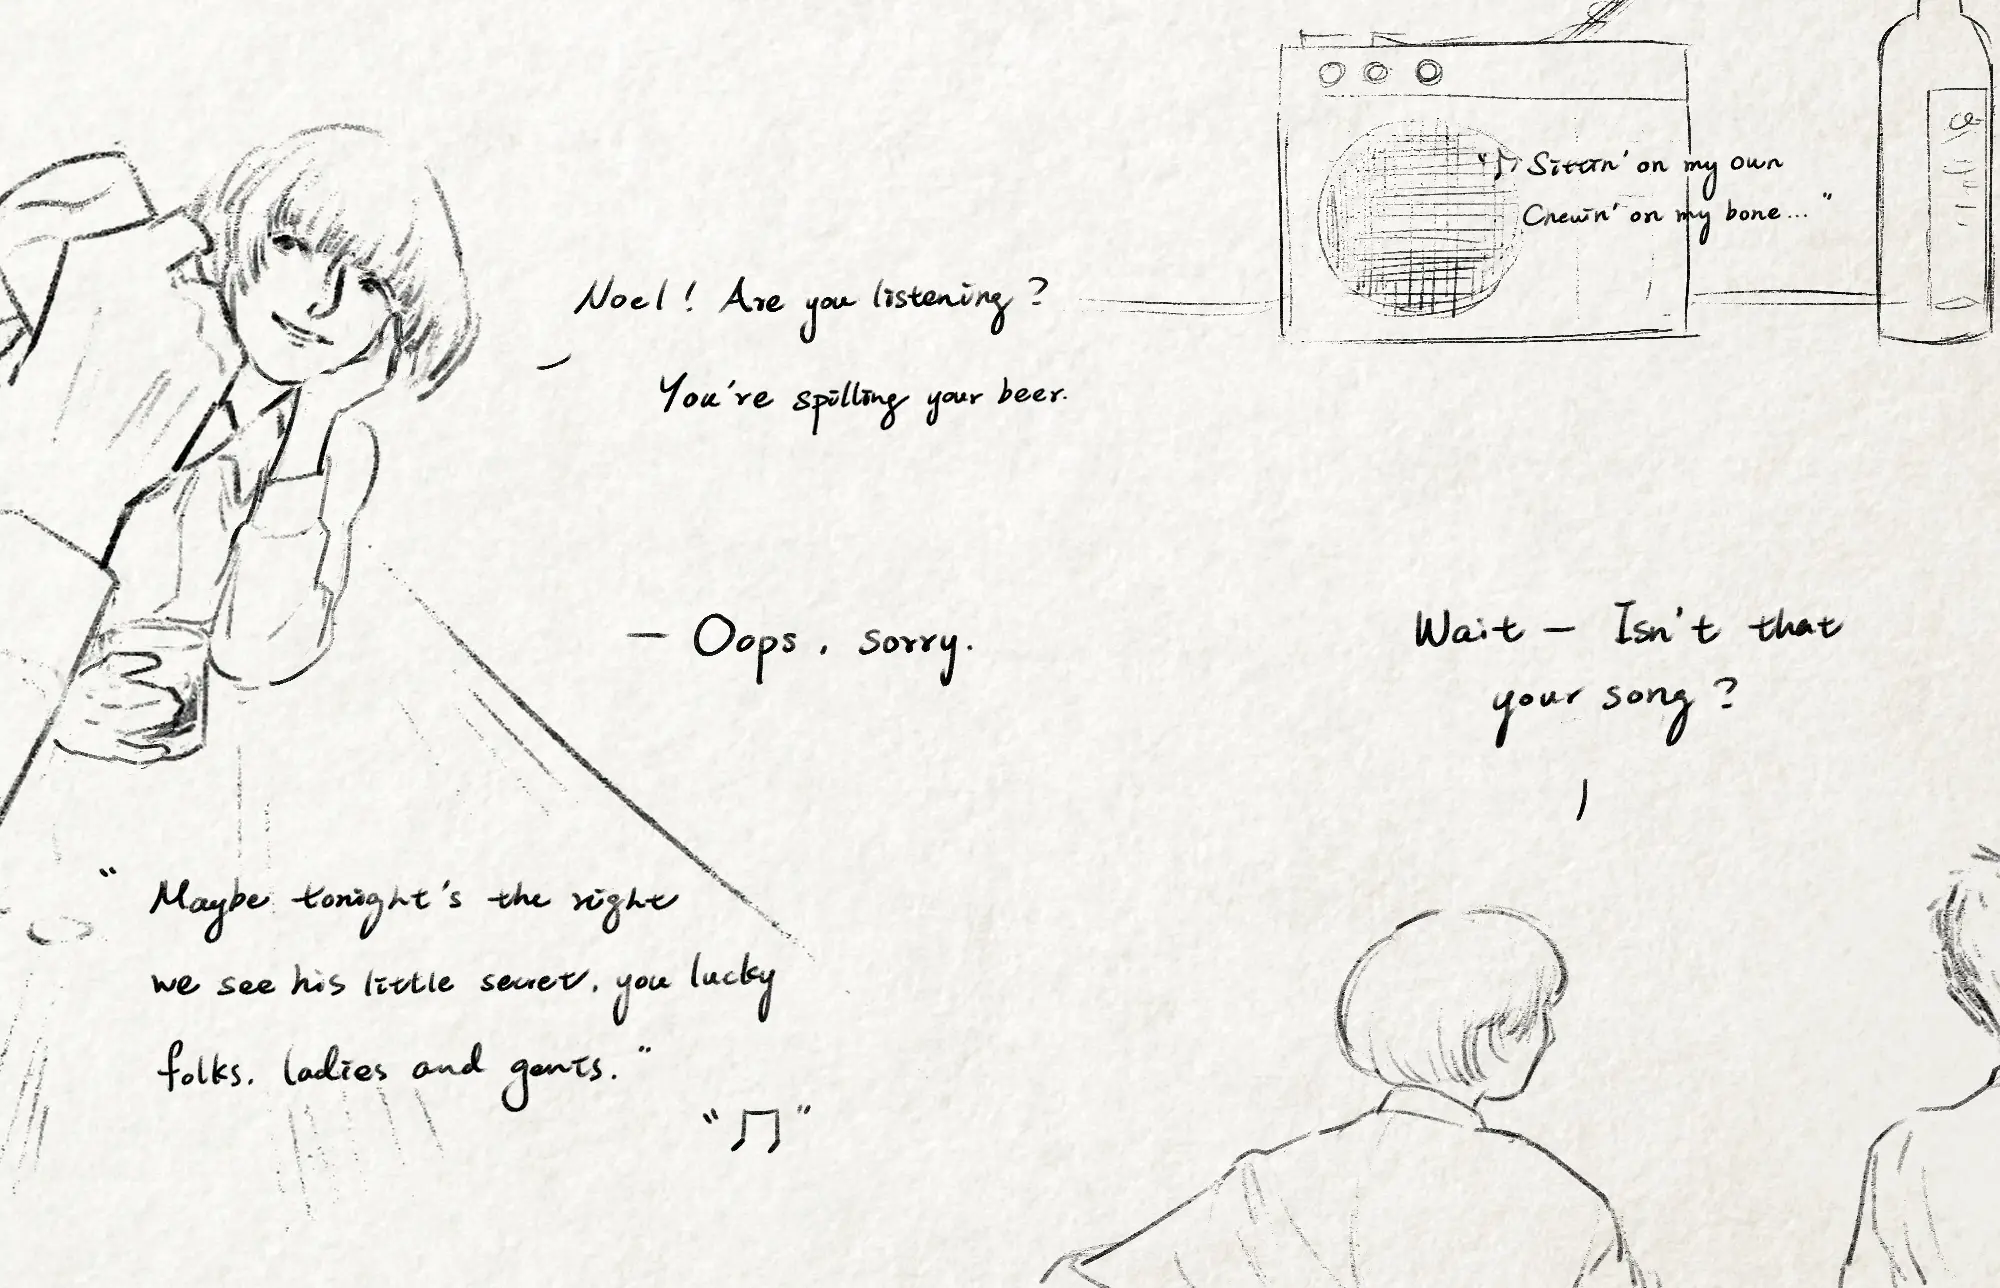 "♫ Sittin' on my own
Chewin' on my bone... "
Noel! Are you listening?
You're spilling your beer.
— Oops, sorry.
Wait — Isn't that
your song?
" Maybe tonight's the right
we see his little secret, you lucky
folks. ladies and gents."
"♫"